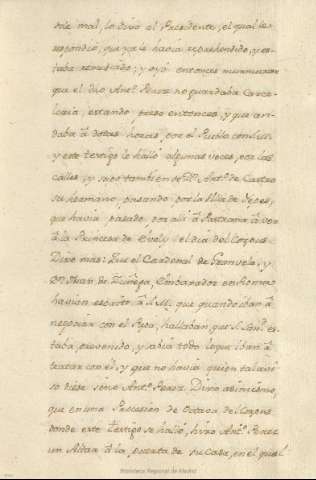 este mal, lo dixo al Presidente, el qual le
respondió, que ya le havia reprehendido, y es-
taba remediado; y oyó entonces murmurar
que el dho Antº Perez no guardaba Carce-
leria, estando preso entonces, y que an-
daba à dotas horas, por el Pueblo
y este testigo le halló algunas veces, por las
calles, y supo tambien de Dn. Antº de Castro
su hermano, pasando por la Villa de Yepes,
que havia pasado por alli à Pastrana à ver
à la Princesa de Evoly el dia del Corpus.
Dixo mas: Que el Cardenal de Granvela, y
Dn Juan de Zuñiga, Embaxador en Roma
havian escrito à S.M. que quando iban à
negociar con el Papa, hallaban que S. Santd es-
taba prevenido, y sabia todo lo que iban à
tratar con él, y que no havia quien tal avi-
so diese sino Antº Perez. Dixo asimismo,
que en una Procesion de Octava del Corpus
donde este testigo se halló, hizo Antº Perez
un Altar à la puerta de su Casa, en el qual
Biblioteca Regional de Madrid